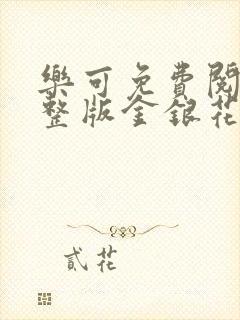 樂可免費閱
整版金銀花
貳花